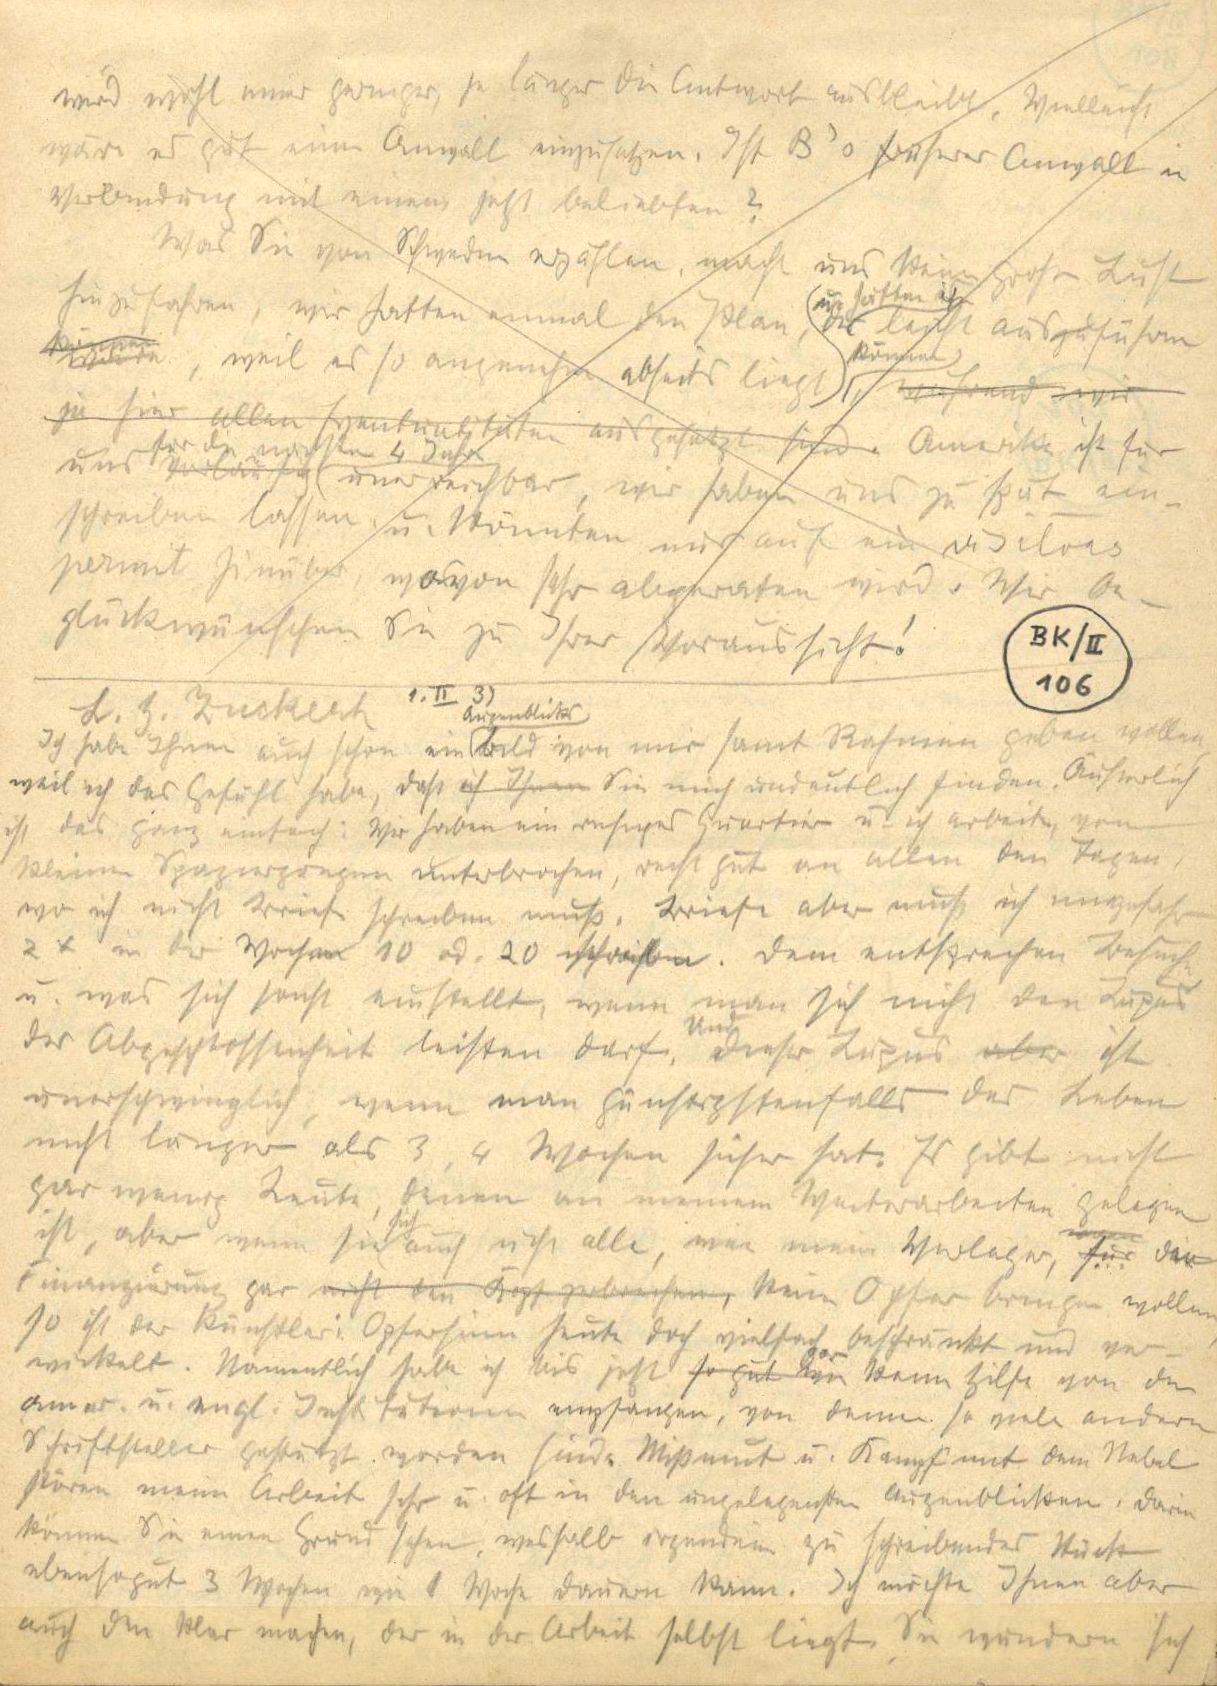 wird wohl immer geringer, je länger die Antwort ausbleibt. Vielleicht
wäre es gut einen Anwalt einzusetzen. Ist B's früherer Anwalt in
Verbindung mit einem jetzt beliebten?
Was Sie von Schweden erzählen, macht uns keine große Lust
hinzufahren, wir hatten einmal den Plan, u hätten ihn
der leicht auszuführen
können
wäre, weil es so angenehm abseits liegt, während wir
ja hier allen Eventualitäten ausgesetzt sind. Amerika ist für
für die nächsten 4 Jahre
uns vorläufig unerreichbar, wir haben uns zu spät ein-
schreiben lassen u. könnten nur auf ein visitors
permit hinüber, wovon sehr abgeraten wird. Wir be-
glückwünschen Sie zu Ihrer Voraussicht!
BK/II
106
L. H. Zuckerk 1. II 3)
Augenblicks
Ich habe Ihnen auch schon ein bild von mir samt Rahmen geben wollen,
weil ich das Gefühl habe, daß ich Ihnen Sie mich undeutlich finden. Äußerlich
ist das ganz einfach: Wir haben ein ruhiges Quartier u. ich arbeite, von
kleinen Spaziergängen unterbrochen, recht gut an allen den Tagen,
wo ich nicht Briefe schreiben muß. Briefe aber muß ich ungefähr
2 x in der Woche 10 od. 20 schreiben. Dem entsprechen Besuche
u. was sich sonst einstellt, wenn man sich nicht den Luxus
der Abgeschlossenheit leisten darf. Und dieser Luxus aber ist
unerschwinglich, wenn man günstigstenfalls das Leben
nicht länger als 3, 4 Wochen sicher hat. Es gibt nicht
gar wenig Leute, denen an meinem Weiterarbeiten gelegen
ist, aber wenn sie sich auch nicht alle, wie mein Verleger, für die
Finanzierung gar nicht den Kopf zerbrechen, kein Opfer bringen wollen,
so ist der Künstler: Opfersinn heute doch vielfach beschränkt und ver-
wickelt. Namentlich habe ich bis jetzt so gut gar keine Hilfe von den
amer. u. engl. Institutionen empfangen, von denen so viele andere
Schriftsteller gestützt worden sind. Mißmut u. Kampf mit dem Nebel
stören meine Arbeit sehr u. oft in den ungelegensten Augenblicken. Darin
können Sie einen Grund sehen, weshalb irgendein zu schreibendes Stück
ebensogut 3 Wochen wie 1 Woche dauern kann. Ich möchte Ihnen aber
auch den klar machen, der in der Arbeit selbst liegt. Sie wundern sich